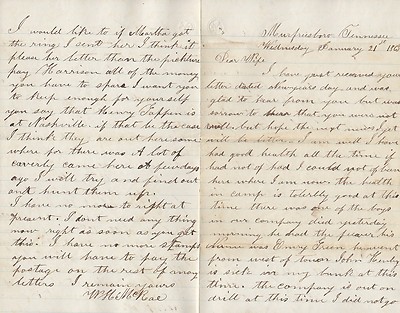 Murfresboro Tennessee
Wednesday January 21st 1863
Dear Wife
I have just received your
letter dated newyears day, and was
glad to hear from you but was
sorrow to hear that you were not
well. but hope the next news I get
will be better. I am well I have
had good health all the time if
had not of had I could not of been
here where I am now. the health
in camp is tolerbly good at this
time there was one of the boys
in our company died yesterday
morning he had the feaver his
name was Emry Green he went
from west of town John Henly
is sick in my bunk at this
time. the company is out on
drill at this time I did not go
I would like to if Martha got
the ring I sent her I think it
please her better than the pickture
pay Harrison all of the money
you have to spare I want you
to keep enough for yourself
you say that Henry Tappin is
at Nashville. if that be the case
I think they are out in some
where for there was A lot of
caverly came here A few days
ago I will try and find out
and hunt them up.
I have no more to right at
present. I dont need any thing
now right as soon as you get
this. I have no more stamps
you will have to pay the
postage on the rest of my
letters I remain yours
W. H. McRae